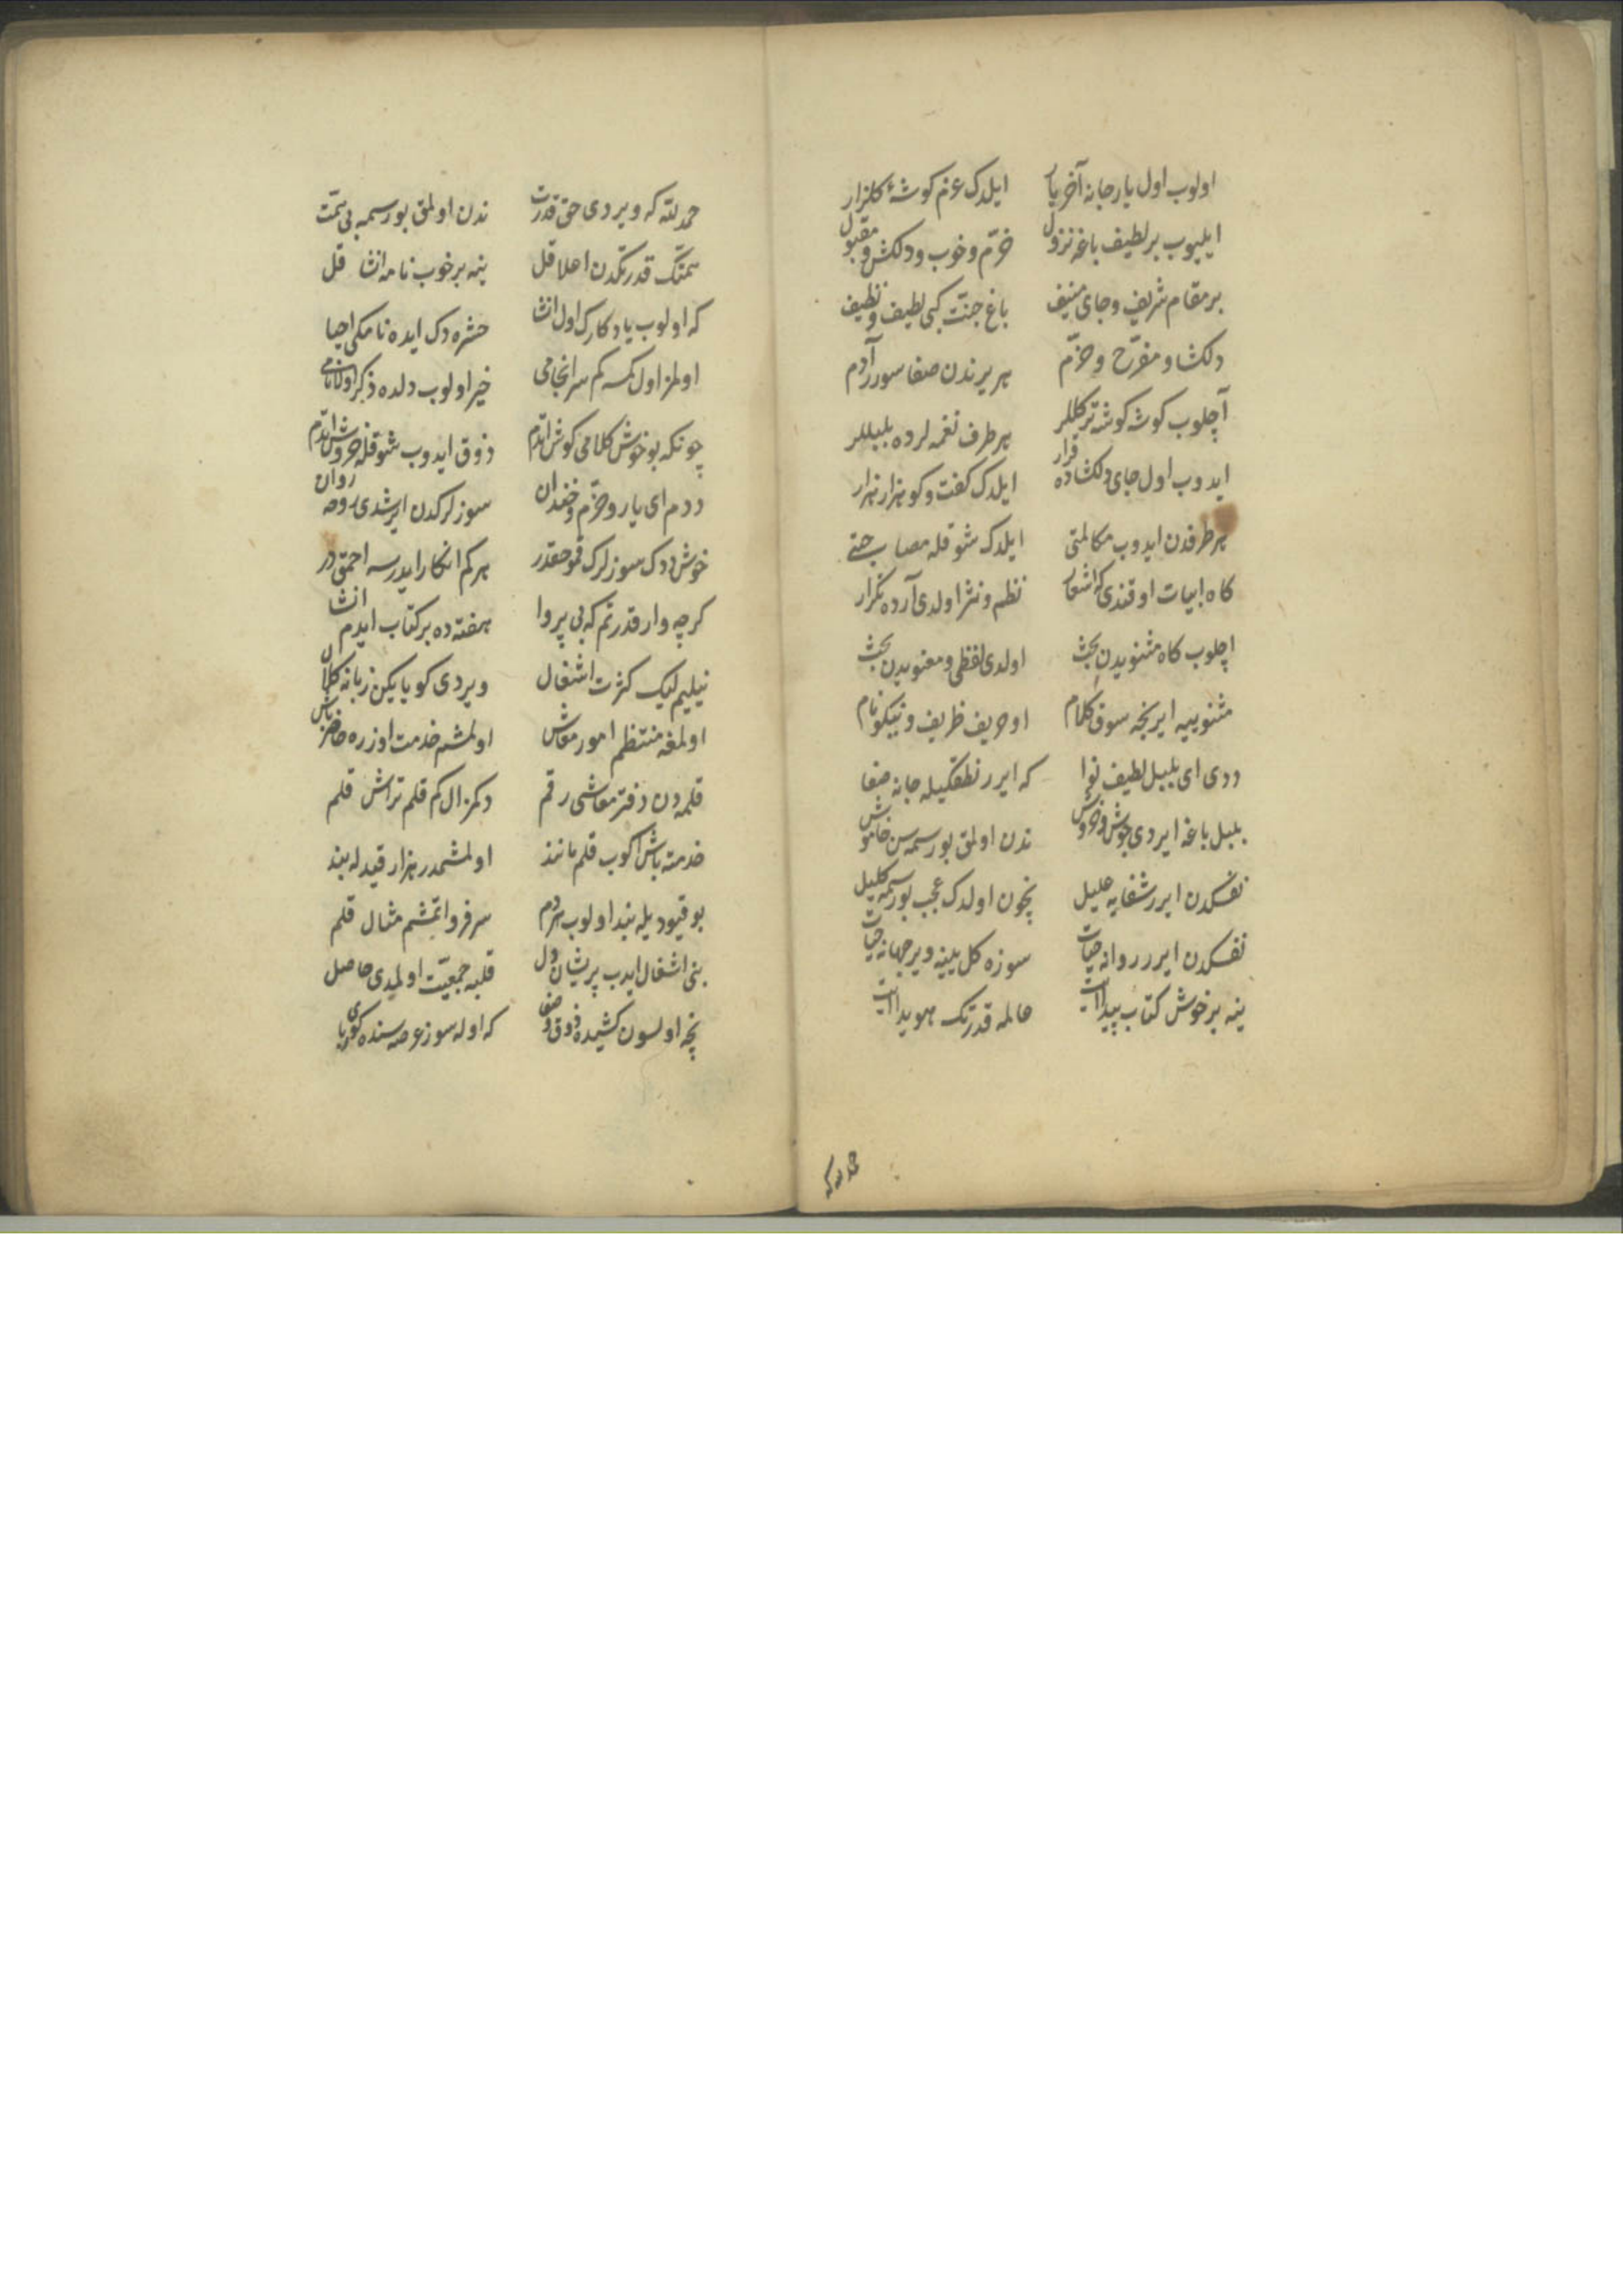 اولوب اول یار جانه آخر یار ایلدک عزم کوشهٔ کلزار
ایلیوب بر لطیف باغه نزول خرّم و خوب و دلکش و مقبول
بر مقام شریف و جای منیف باغ جنّت کبی لطیف و نظیف
دلکشا و مفرّح و خرّم هر یرندن صفا سورر آدم
آچلوب کوشه کوشه تر کللر هر طرف نغمه لرده بلبللر
ایدوب اول جای دلکشاده قرار ایلدک کفت و کو هزار هزار
هر طرفدن ایدوب مکالمتی ایلدک شوقله مصاحبتی
کاه ابیات اوقندی که اشعار نظم و نثر اولدی آرده تکرار
اچلوب کاه مثنویدن بحث اولدی لفظی و معنویدن بحث
مثنوییه ایریجه سوق کلام او حریف ظریف و نیکونام
ددی ای بلبل لطیف نوا که ایرر نطقکیله جانه صفا
بلبل باغه ایردی جوش و خروش ندن اولمق بو رسمه سن خاموش
نفسکدن ایرر شفایه علیل نچون اولدک عجب بو رسمه کلیل
نفسکدن ایرر روانه حیات سوزه کل یینه ویر جهانه حیات
ینه بر خوش کتاب پیدا ایت عالمه قدرتک هویدا ایت
حمد لله که
حمد لله که ویردی حق قدرت ندن اولمق بو رسمه بی همّت
همتک قدرتکدن اعلا قل ینه بر خوب نامه انشا قل
که اولوب یادکارک اول انشا حشره دک ایده نامکی احیا
اولمز اول کمسه کم سرانجامی خیر اولوب دلده ذکر اولنا نامی
چونکه بو خوش کلامی کوش ایتدم ذوق ایدوب شوقله خروش ایتدم
ددم ای یار و خرّم و خندان سوزلرکدن ایرشدی روحه روان
خوش ددک سوزلرک قمو حقدر هر کم انکار ایدرسه احمق در
کرچه وار قدرتم که بی پروا هفته ده بر کتاب ایدم انشا
نیلییم لیک کثرت اشغال ویردی کویا یکن زبانه کلال
اولمغه منتظم امور معاش اولمشم خدمت اوزره حاضر باش
قلمه دن دفتر معاشی رقم دکمز ال کم قلم تراش قلم
خدمته باش اکوب قلم مانند اولمشمدر هزار قیدله بند
بو قیودیله بند اولوب هر دم سر فرو ایتمشم مثال قلم
بنی اشغال ایدب پریشان دل قلبه جمعیّت اولمدی حاصل
نچه اولسون کشیده ذوق و صفا که اوله سوز عرصه سنده کوی ربا